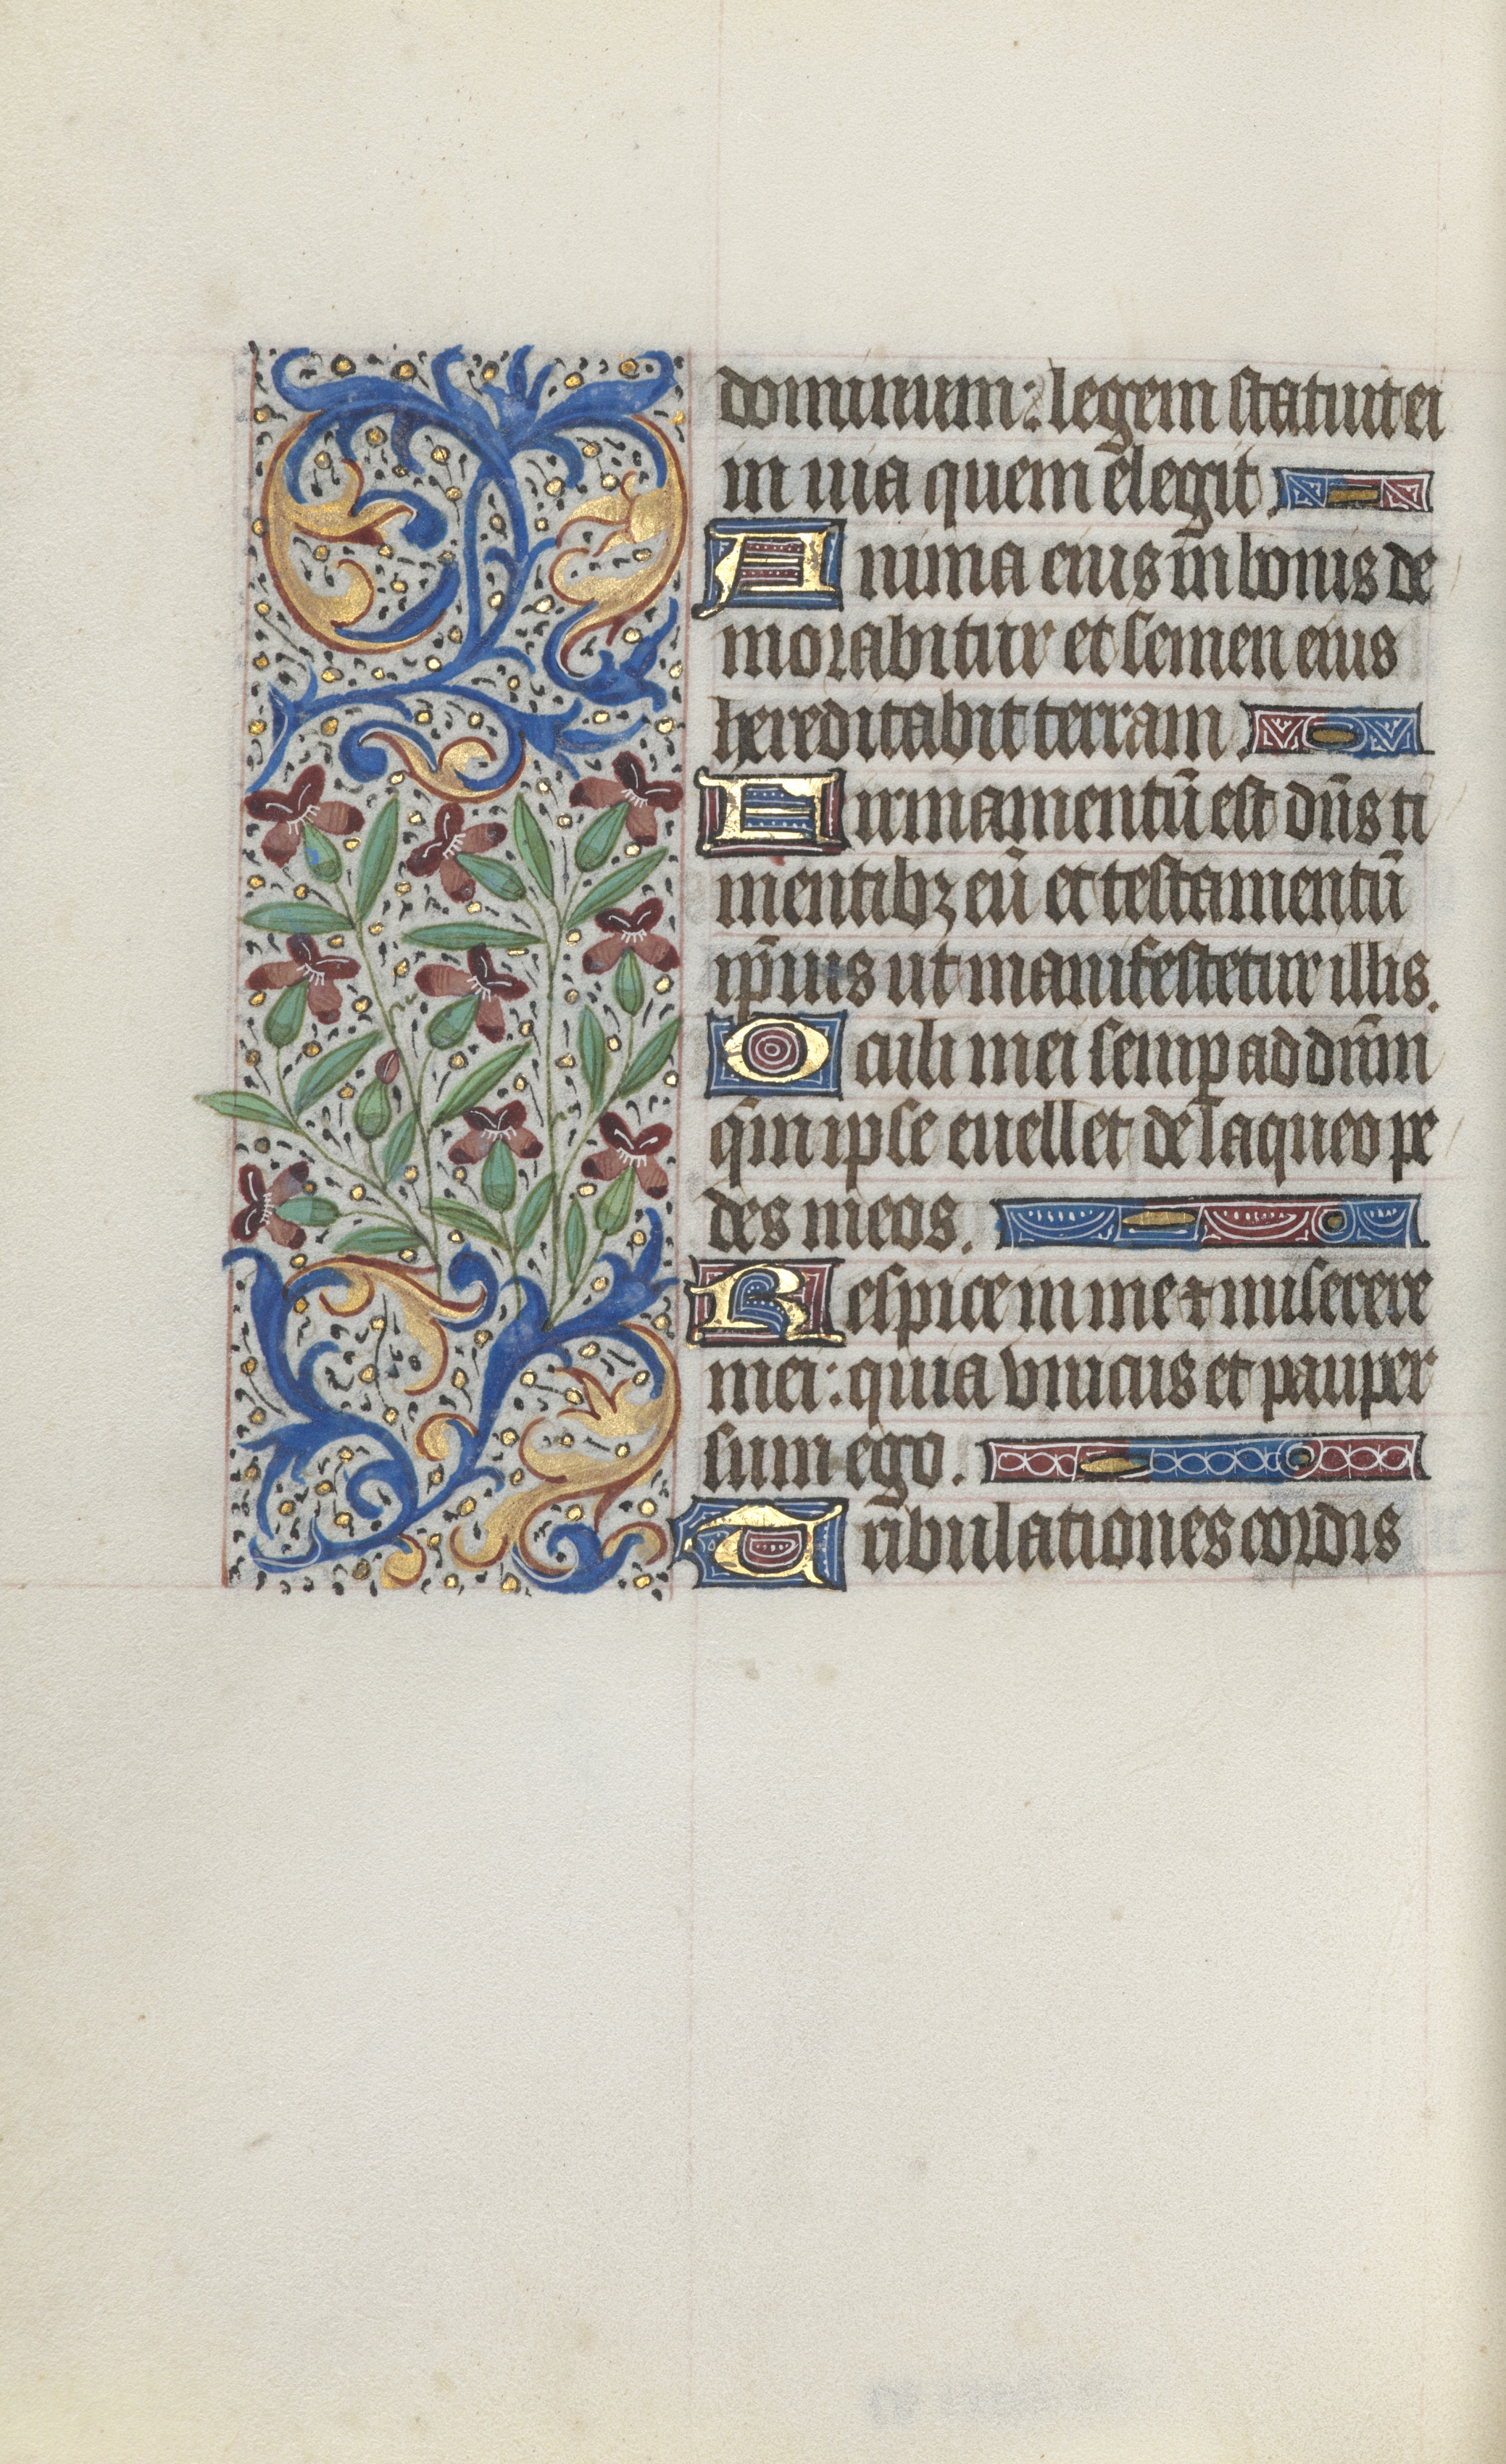 dominum: legem statuit ei
in uia quem elegit.
Anima eius in bonis de
morabitur et semen eius
hereditabit terram.
Firmamentū est dn̄s ti
mentibꝫ eū et testamentū
ip̄ius ut manifestetur illis.
Oculi mei semꝑ ad dn̄m
qm̄ ipse euellet de laqueo pe
des meos.
Respice in me ⁊ miserere
mei: quia vnicus et pauper
sum ego.
Tribulationes cordis